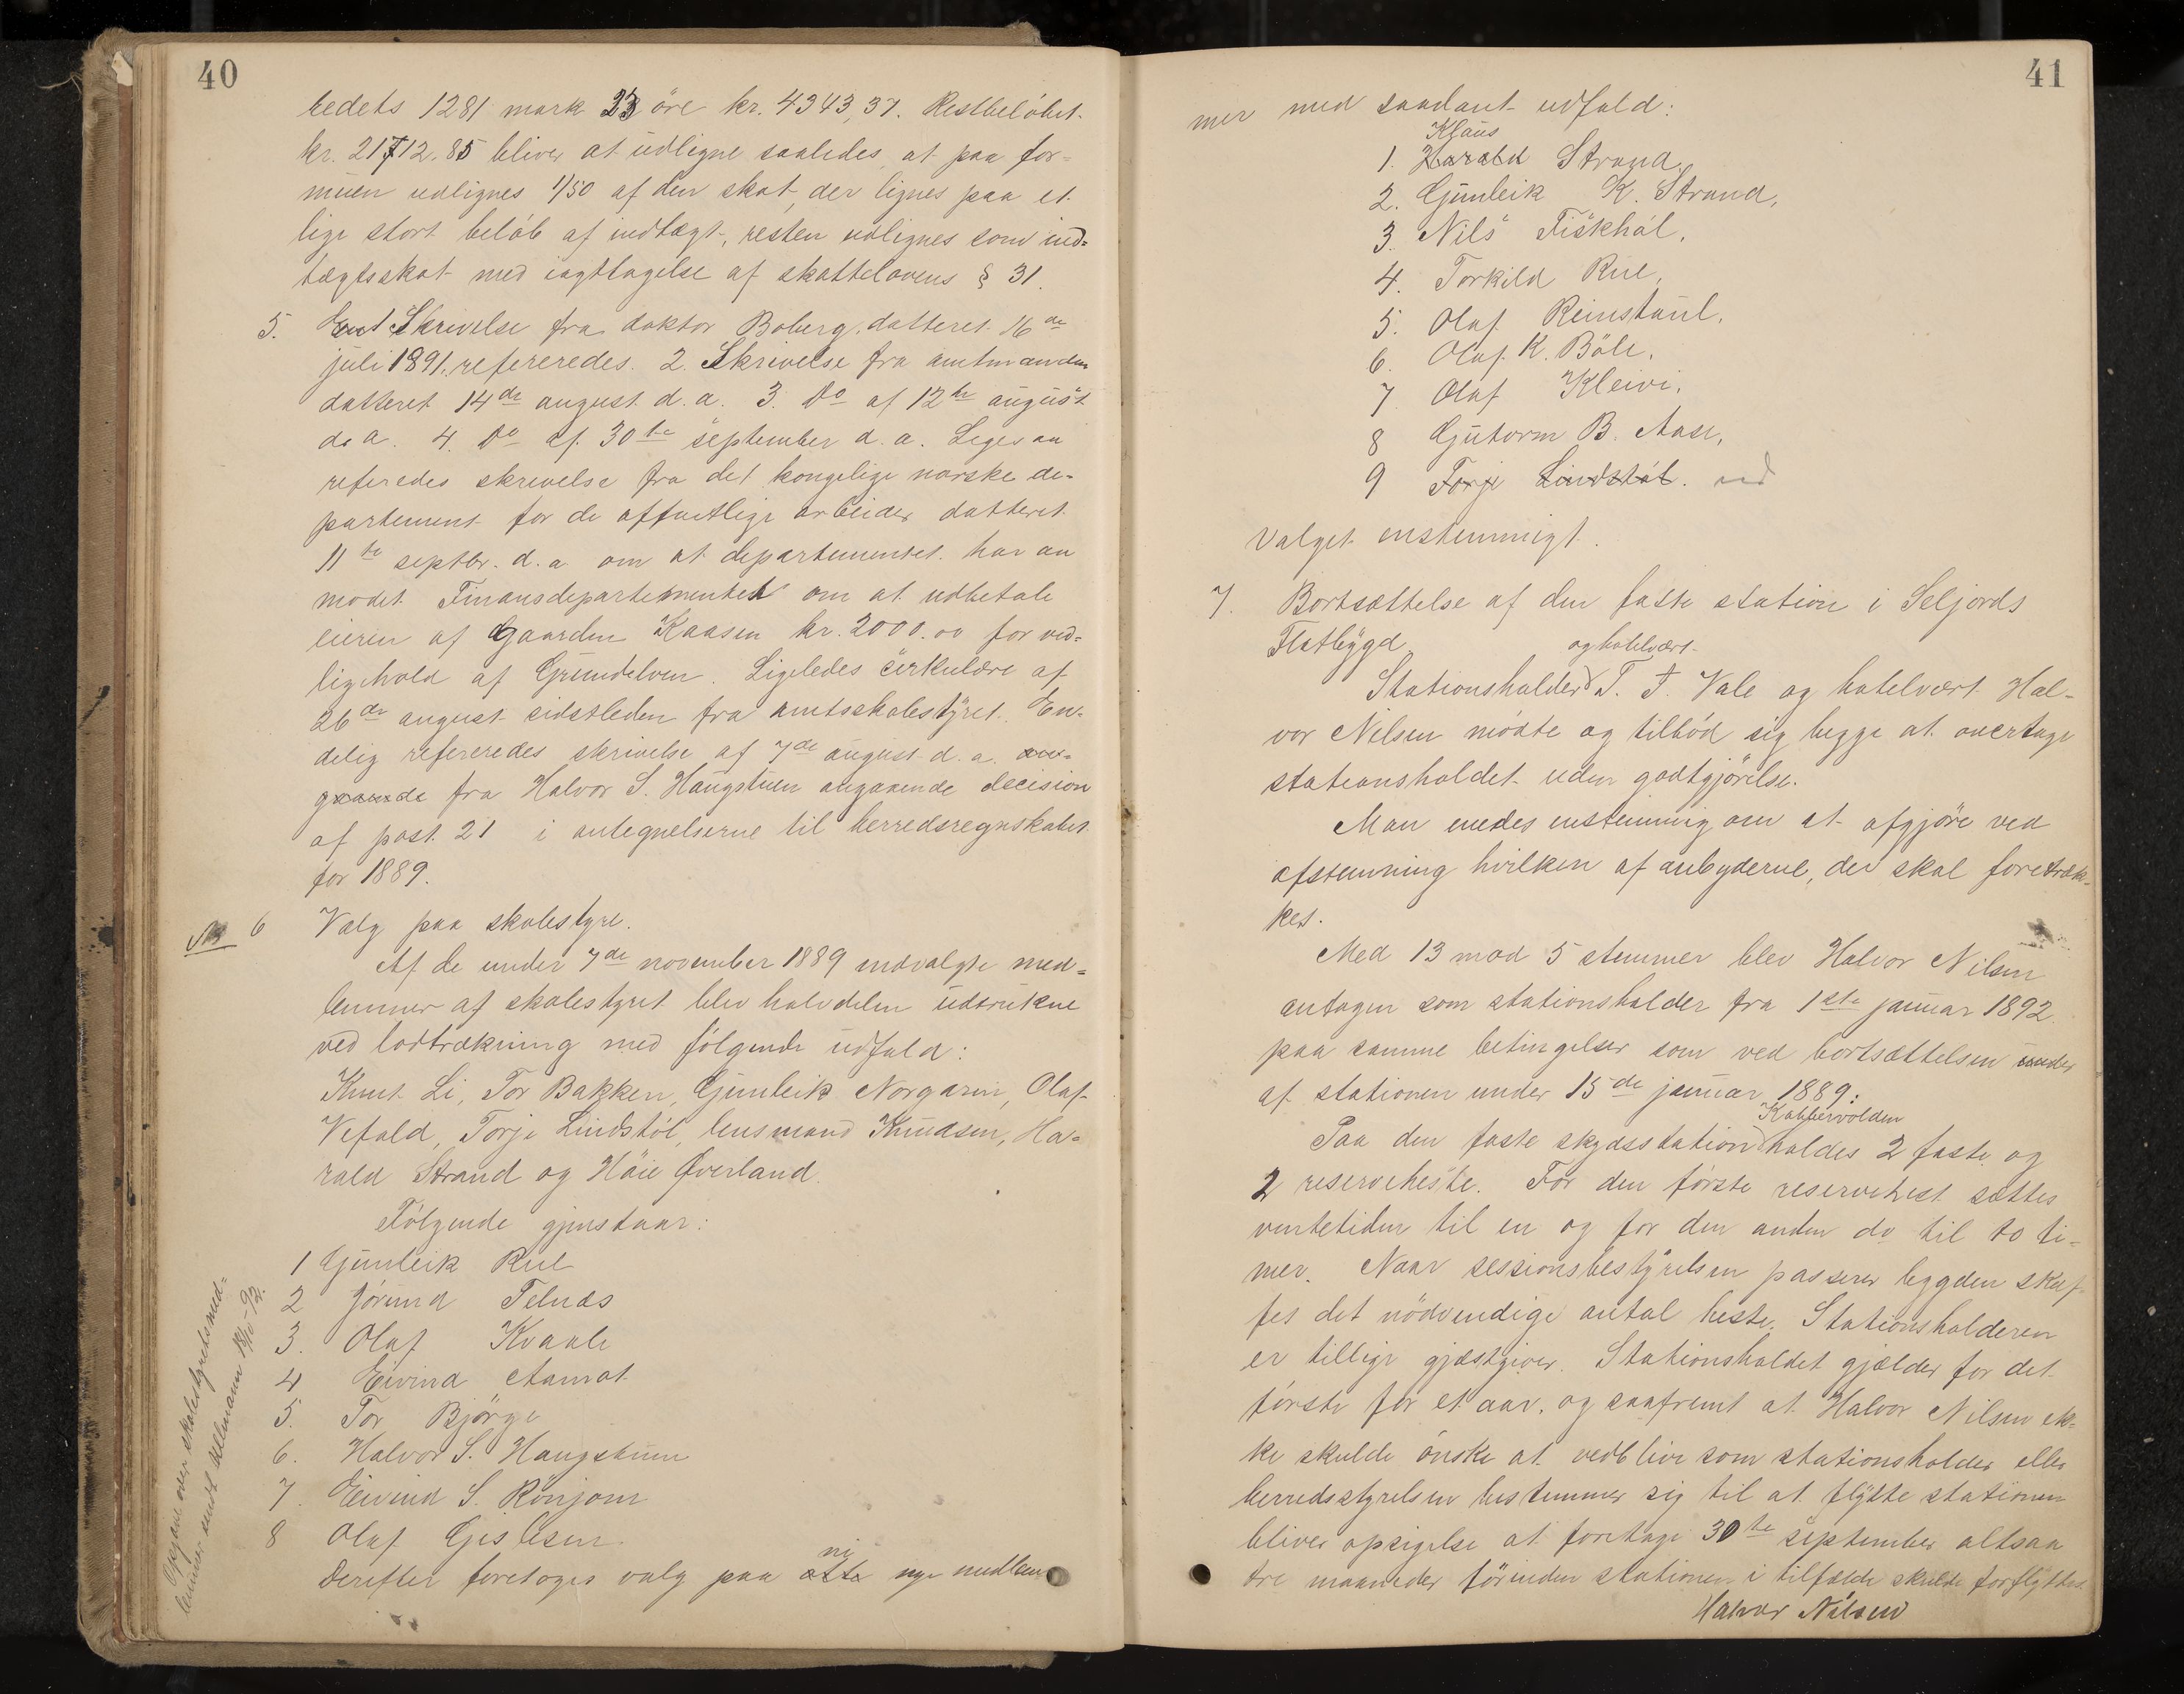 40
bedets 1281 mark 23 öre kr. 4343,37. Restbelöbet
kr. 21712.85 bliver at udligne saaledes, at paa for-
muen udlignes 1/50 af den skat, der lignes paa et
lige stort belöb af indtægt, resten udlignes som ind-
tægtsskat med iagttagelse af skattelovens § 31.
5. Skrivelse fra doktor Boberg, datteret 16de
juli 1891, refereredes. 2. Skrivelse fra amtmanden
datteret 14de august d.a. 3. Do af 12te august
d.a. 4. Do af 30te september d.a. Ligesaa
referedes skrivelse fra det kongelige norske de-
partement for de offentlige arbeider datteret
11te septbr. d.a. om at departementet har an
modet Finansdepartementet om at udbetale
eieren af Gaarden Kaasen kr. 2000.00 for ved-
ligehold af Grundelven. Ligeledes cirkulære af
26de august sidstleden fra amtsskolestyret. En-
delig refereredes skrivelse af 7de august d.a. an-
gaaende fra Halvor S. Haugstuen angaaende decision
af post 21 i antegnelserne til herredsregnskabet
for 1889.
6 Valg paa skolestyre.
Af de under 7de november 1889 indvalgte med-
lemmer af skolestyret blev halvdelen udtrukne
ved lodtrækning med følgende udfald:
Knut Li, Tor Bakken, Gunleik Norgarm, Olaf
Vefald, Torje Lindstöl, lensmand Knudsen, Ha-
rald Strand og Höie Øverland.
Følgende gjenstaar:
1 Gunleik Rue
2 Jörund Telnæs
3. Olaf Kvaale
4 Eivind Aamot
5. Tor Björge
6. Halvor S. Haugstuen
7. Eivind S. Rönjom
8 Olaf Gislesen
ni
Derefter foretoges valg paa otte nye medlem-
Opgave over skolestyretsmed-
lemmer sendt
41
mer med saadant udfald:
Klaus
1. Harald Strand,
2. Gunleik K. Strand,
3. Nils Fiskhöl,
4. Torkild Rue,
5. Olaf Reinstaul,
6. Olaf K. Böle,
7 Olaf Kleivi,
8 Gutorm B. Aase,
9 Torje Lindstöl.
Valget enstemmigt.
7. Bortsættelse af den faste station i Seljords
Flatbygd.
og hotelvært
Stationsholder T. T. Vale og hotelvært Hal-
vor Nilsen mödte og tilböd sig begge at overtage
stationsholdet uden godtgjörelse.
Man enedes enstemmig om at afgjöre ved
afstemning hvilken af anbyderne, der skal foretræk-
kes.
Med 13 mod 5 stemmer blev Halvor Nilsen
antagen som stationsholder fra 1ste januar 1892
paa samme betingelser som ved bortsættelsen under
af stationen under 15de januar 1889:
Kabbervolden
Paa den faste skydsstation holdes 2 faste og
2 reserveheste. For den förste reservehest sættes
ventetiden til en og for den anden do til to ti-
mer. Naar sessionsbestyrelsen passerer bygden skaf-
fes det nödvendige antal heste. Stationsholderen
er tillige gjæstgiver. Stationsholdet gjælder for det
förste for et aar, og saafremt at Halvor Nilsen ik-
ke skulde önske at vedblive som stationsholder eller
herredsstyrelsen bestemmer sig til at flytte stationen
bliver opsigelse at foretage 30te september altsaa
tre maaneder förinden stationen i tilfælde skulde forflyttes.
Halvor Nilsen